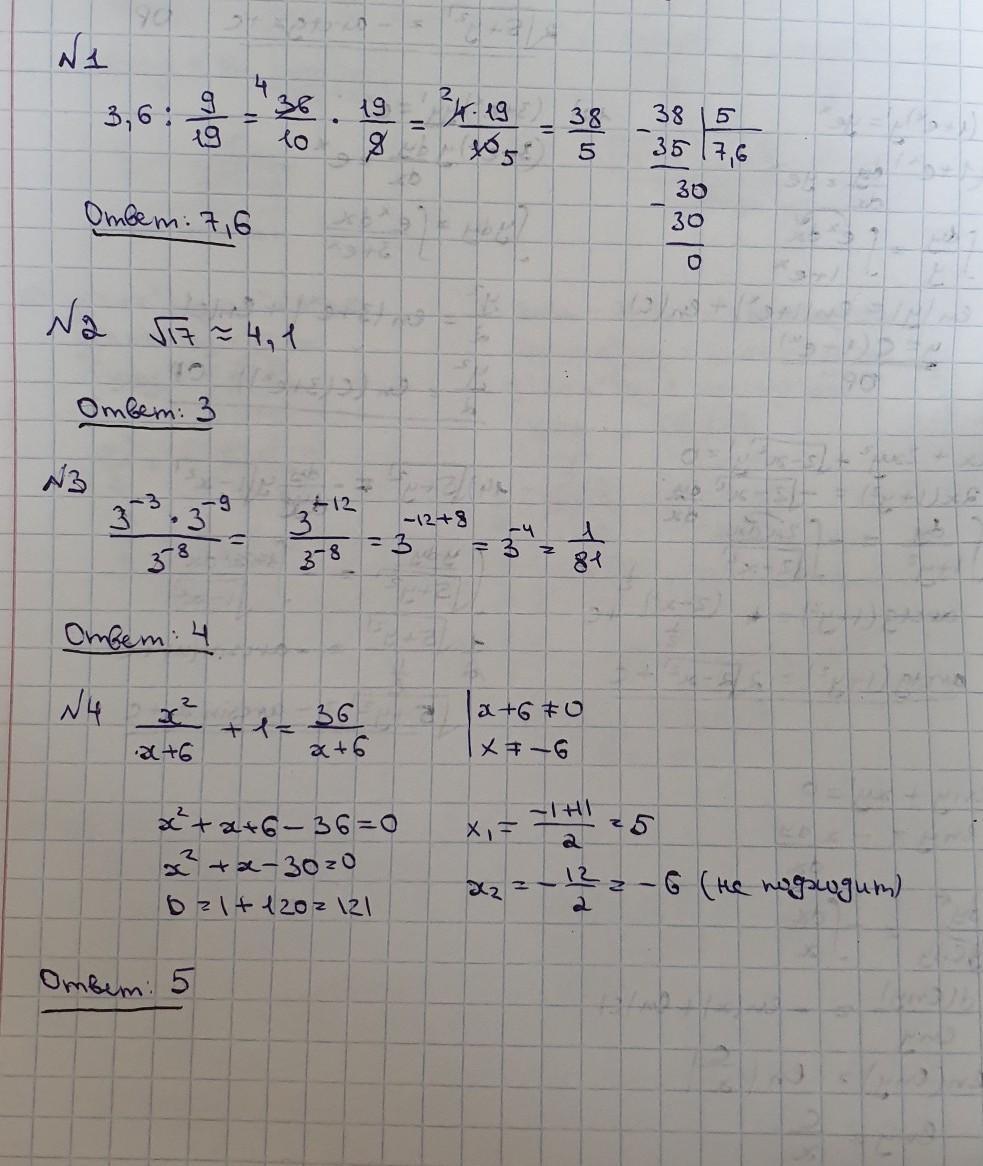 №1
3,6 : 9/19 = 36/10 · 19/9 = 4·19/10 = 38/5
4
2
5
38 | 5
35 | 7,6
30
30
0
Ответ: 7,6
№2 √17 ≈ 4,1
Ответ: 3
№3
3^-3 · 3^-9 / 3^-8 = 3^-12 / 3^-8 = 3^-12+8 = 3^-4 = 1/81
Ответ: 4
№4 x²/x+6 + 1 = 36/x+6
x+6 ≠ 0
x ≠ -6
x² + x + 6 - 36 = 0
x² + x - 30 = 0
D = 1 + 120 = 121
x₁ = -1+11/2 = 5
x₂ = -12/2 = -6 (не подходит)
Ответ: 5